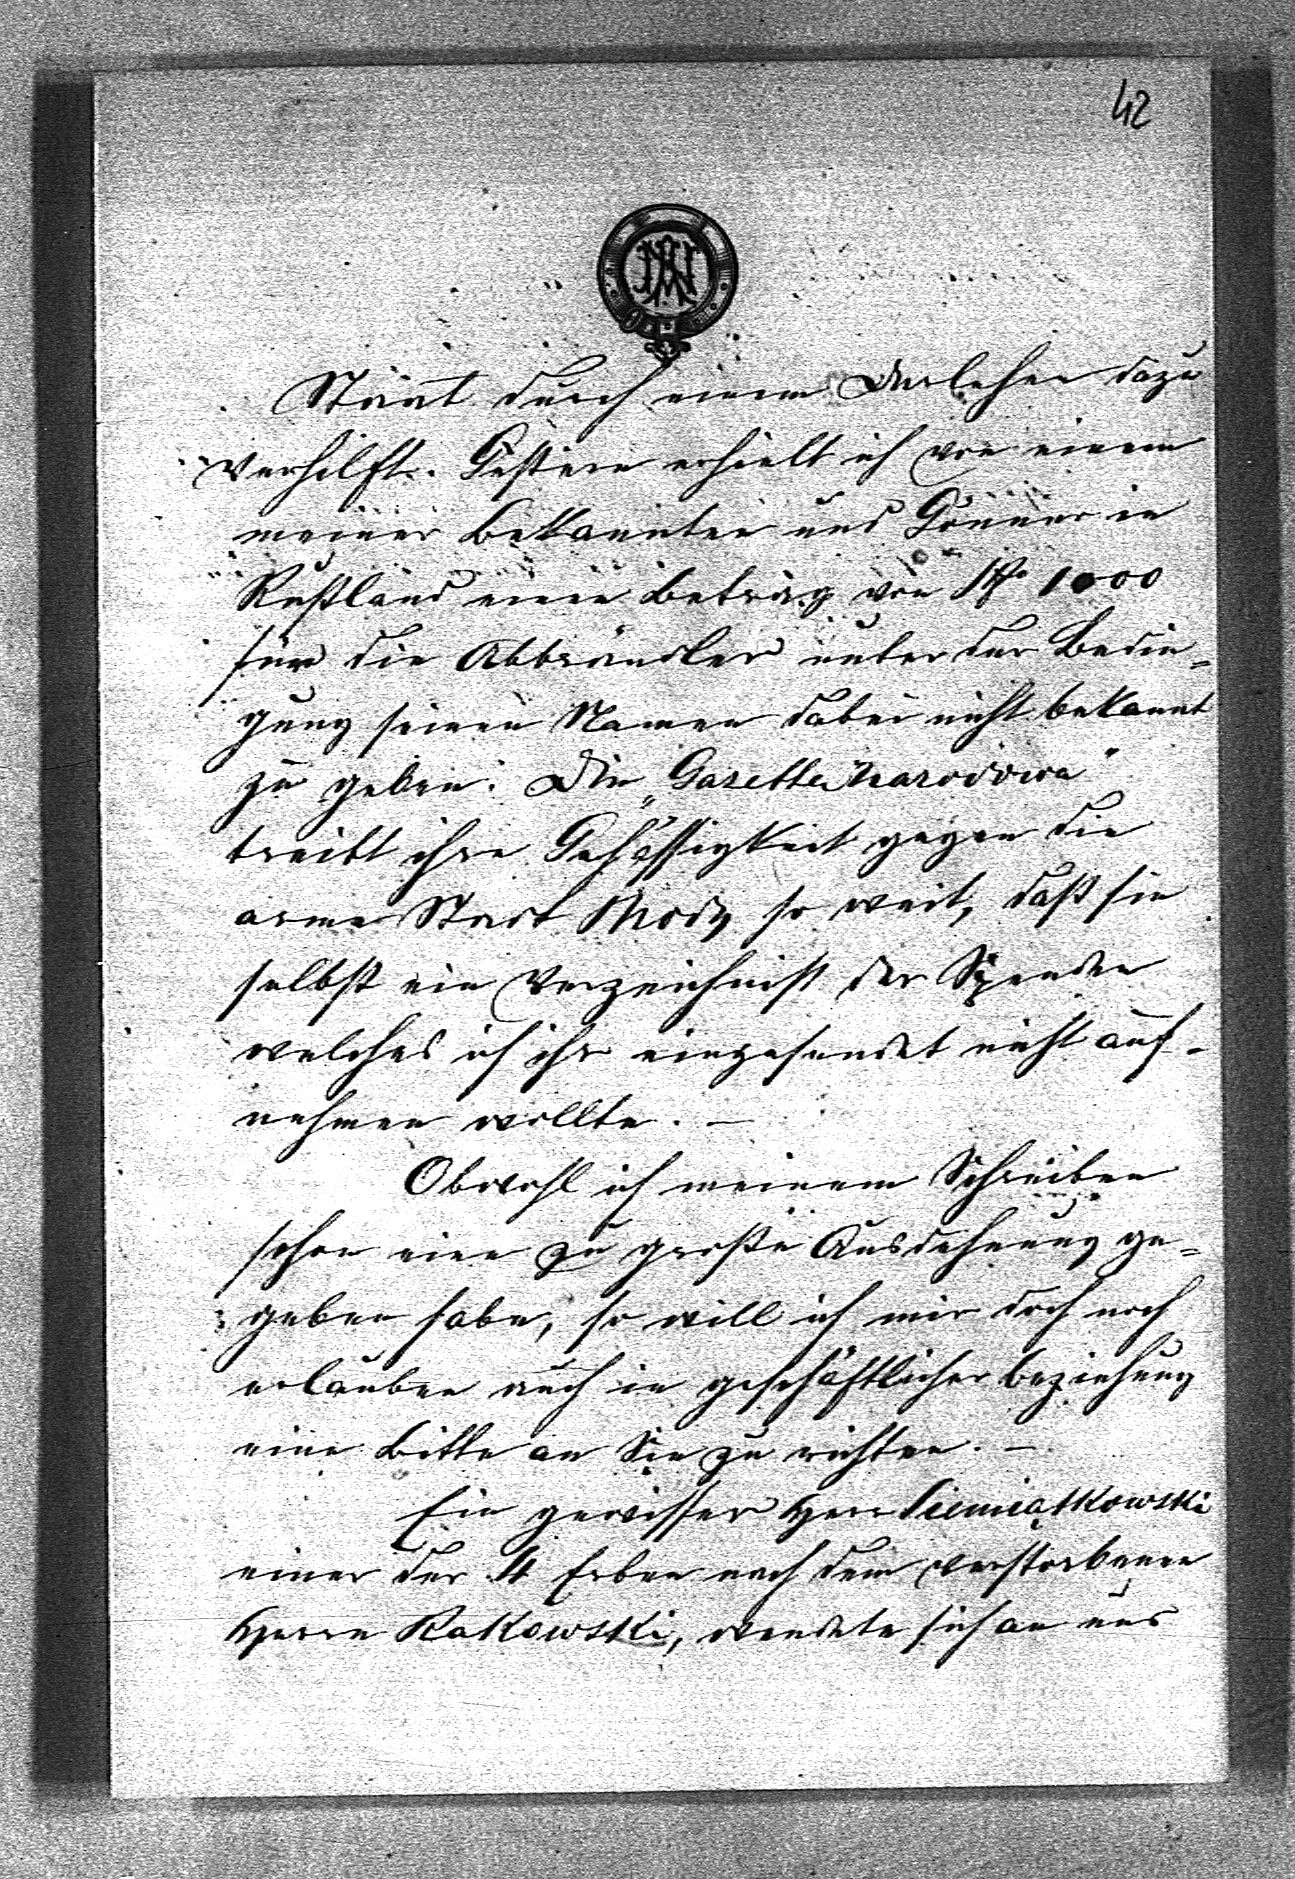 42
Staat durch einem Darlehen dazu
verhilft. Gestern erhielt ich von einem
meiner Bekannten und Gönner in
Rußland einen Betrag von 1000
für die Abbrändler unter der Bedin=
gung seinen Namen dabei nicht bekannt
zu geben. Die „Gazetta narodowa"
treibt ihre Gehässigkeit gegen die
arme Stadt Brody so weit, daß sie
selbst ein Verzeichnist der Spenden
welches ich ihr eingesendet nicht auf-
nehmen wollte. —
Obwohl ich meinem Schreiben
schon eine zu große Ausdehnung ge=
geben habe, so will ich mir doch noch
erlauben auch in geschäftlicher Beziehung
eine Bitte an Sie zu richten. —
Ein gewisser Herr Siemiątkowski
einer der 4 Erben nach dem verstorbenen
Herrn Rakowski, wendete sich an uns